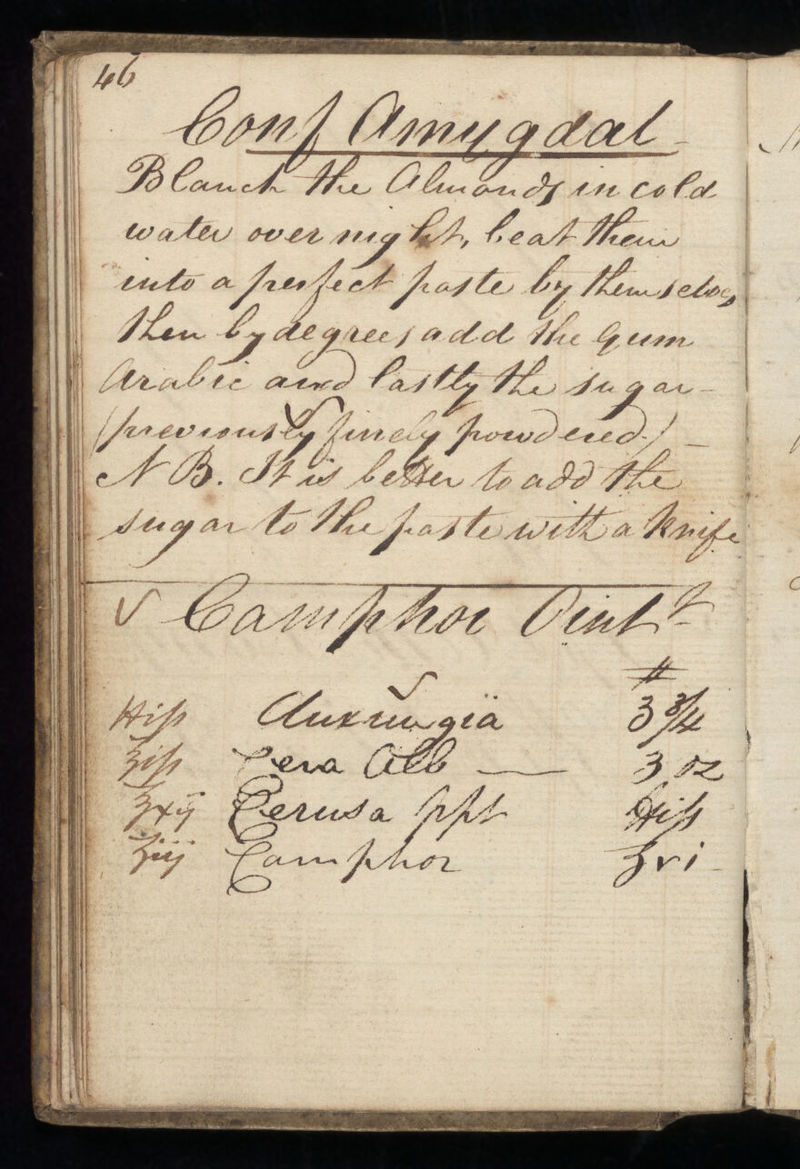 46
Conf Amygdal
Blanch the Almonds in cold
water over night, beat them
into a perfect paste by themselves
then by degrees add the Gum
Arabic and lastly the sugar
(previously finely powdered.)
N B. It is better to add the
sugar to the paste with a knife
Camphor Oint^t
℔
℔iſs Auxungiä 3 3/4
℥iſs Cera Alb — 3 oz
℥xij Cerusa ppt ℔iſs
ʒiij Camphor ʒvi